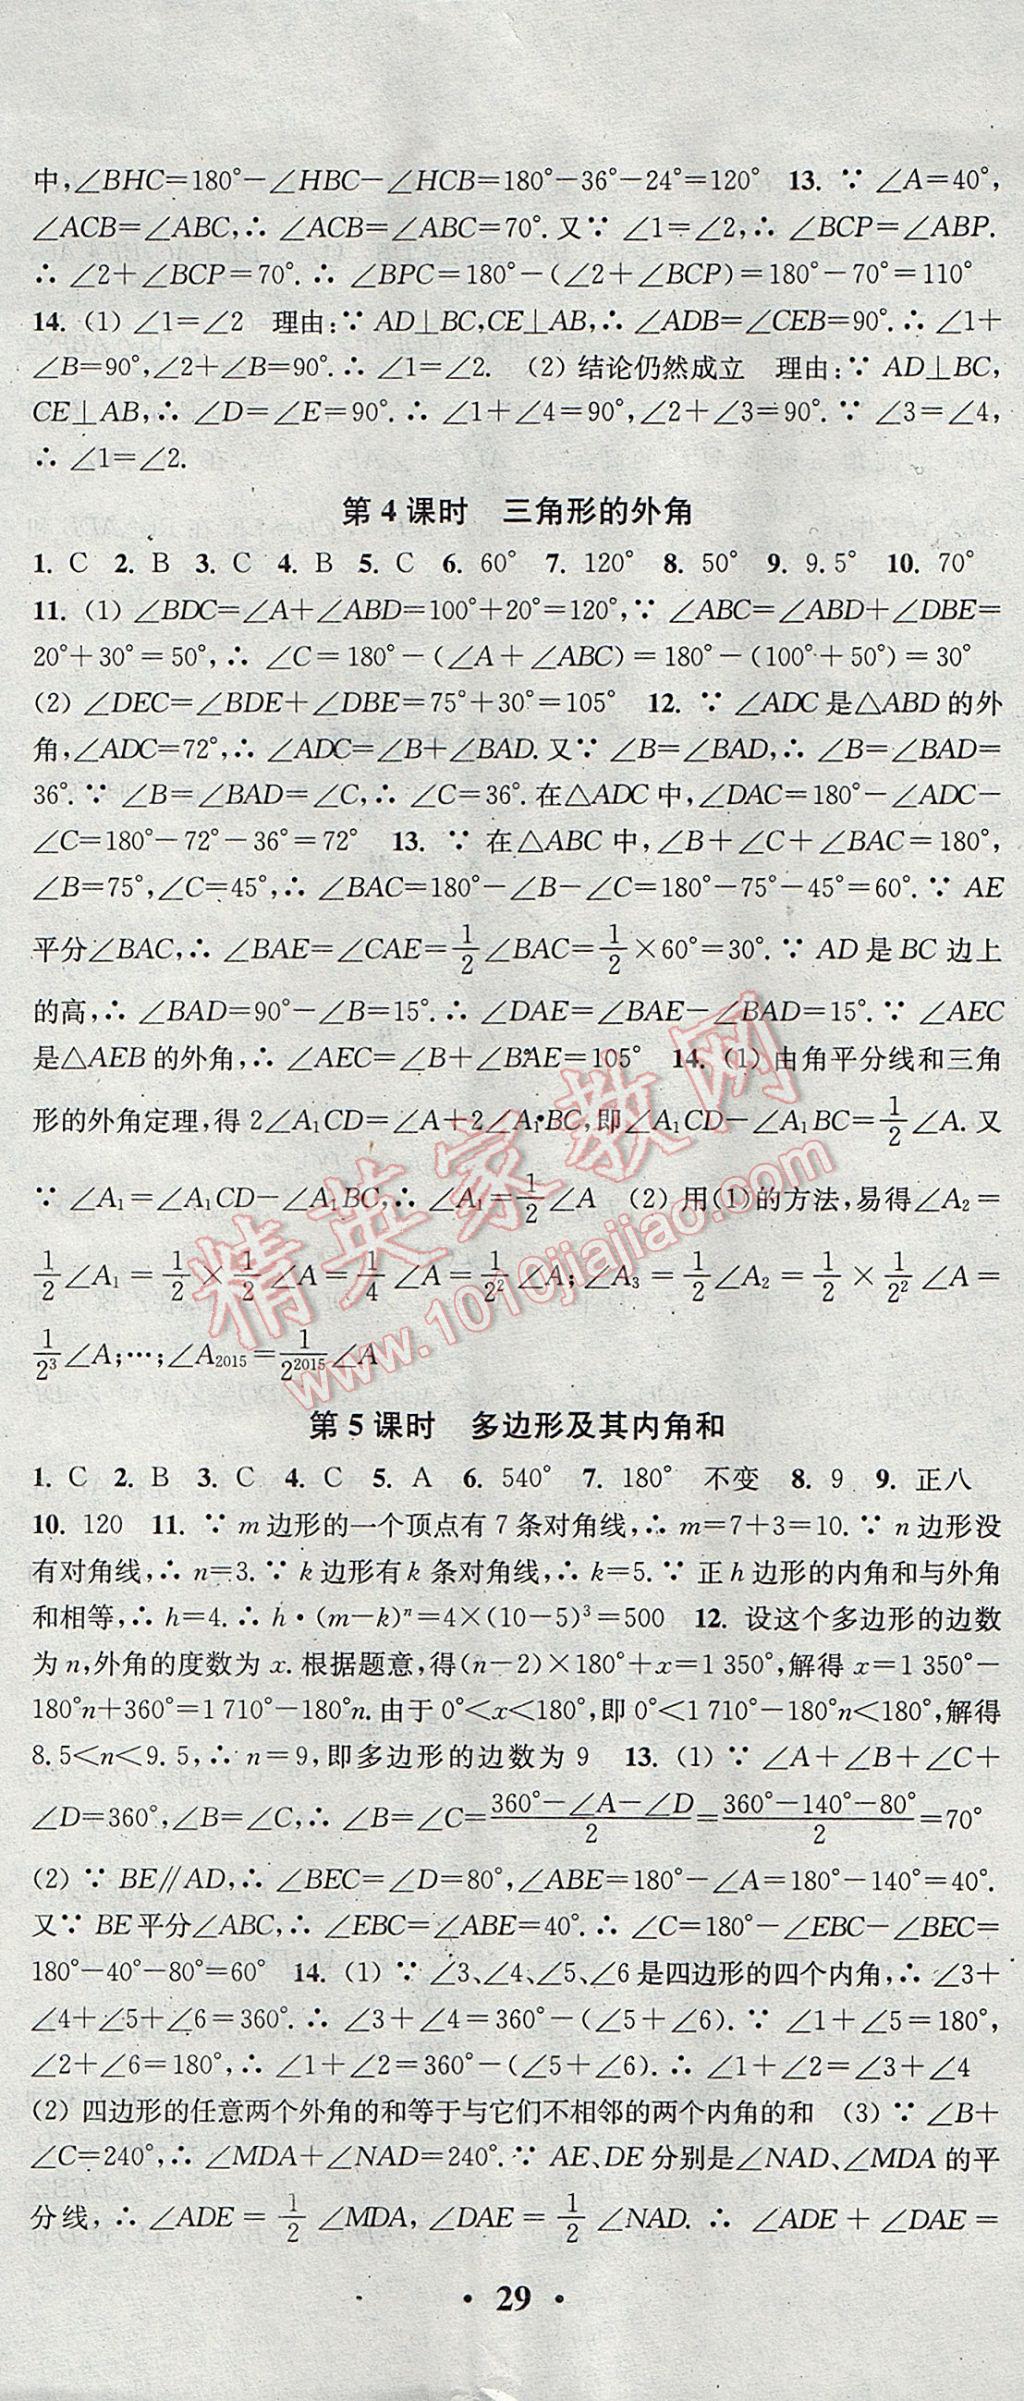 中,∠BHC=180°-∠HBC-∠HCB=180°-36°-24°=120° 13. ∵ ∠A=40°,
∠ACB=∠ABC,∴ ∠ACB=∠ABC=70°.又∵ ∠1=∠2,∴ ∠BCP=∠ABP.
∴ ∠2+∠BCP=70°.∴ ∠BPC=180°-(∠2+∠BCP)=180°-70°=110°
14. (1) ∠1=∠2 理由:∵ AD⊥BC,CE⊥AB,∴ ∠ADB=∠CEB=90°.∴ ∠1+
∠B=90°,∠2+∠B=90°.∴ ∠1=∠2. (2) 结论仍然成立 理由:∵ AD⊥BC,
CE⊥AB,∴ ∠D=∠E=90°.∴ ∠1+∠4=90°,∠2+∠3=90°.∵ ∠3=∠4,
∴ ∠1=∠2.
第 4 课时 三角形的外角
1. C 2. B 3. C 4. B 5. C 6. 60° 7. 120° 8. 50° 9. 9.5° 10. 70°
11. (1) ∠BDC=∠A+∠ABD=100°+20°=120°,∵ ∠ABC=∠ABD+∠DBE=
20°+30°=50°,∴ ∠C=180°-(∠A+∠ABC)=180°-(100°+50°)=30°
(2) ∠DEC=∠BDE+∠DBE=75°+30°=105° 12. ∵ ∠ADC是△ABD的外
角,∠ADC=72°,∴ ∠ADC=∠B+∠BAD.又∵ ∠B=∠BAD,∴ ∠B=∠BAD=
36°.∵ ∠B=∠BAD=∠C,∴ ∠C=36°.在△ADC中,∠DAC=180°-∠ADC-
∠C=180°-72°-36°=72° 13. ∵ 在△ABC中,∠B+∠C+∠BAC=180°,
∠B=75°,∠C=45°,∴ ∠BAC=180°-∠B-∠C=180°-75°-45°=60°.∵ AE
平分∠BAC,∴ ∠BAE=∠CAE=1/2∠BAC=1/2×60°=30°.∵ AD是BC边上
的高,∴ ∠BAD=90°-∠B=15°.∴ ∠DAE=∠BAE-∠BAD=15°.∵ ∠AEC
是△AEB的外角,∴ ∠AEC=∠B+∠BAE=105° 14. (1) 由角平分线和三角
形的外角定理,得 2∠A₁CD=∠A+2∠A₁BC,即∠A₁CD-∠A₁BC=1/2∠A.又
∵ ∠A₁=∠A₁CD-∠A₁BC,∴ ∠A₁=1/2∠A (2) 用(1)的方法,易得∠A₂=
1/2∠A₁=1/2×1/2∠A=1/4∠A=1/2²∠A;∠A₃=1/2∠A₂=1/2×1/2²∠A=
1/2³∠A;…;∠A₂₀₁₅=1/2²⁰¹⁵∠A
第 5 课时 多边形及其内角和
1. C 2. B 3. C 4. C 5. A 6. 540° 7. 180° 不变 8. 9 9. 正八
10. 120 11. ∵ m边形的一个顶点有7条对角线,∴ m=7+3=10.∵ n边形没
有对角线,∴ n=3.∵ k边形有k条对角线,∴ k=5.∵ 正h边形的内角和与外角
和相等,∴ h=4.∴ h·(m-k)ⁿ=4×(10-5)³=500 12. 设这个多边形的边数
为n,外角的度数为x.根据题意,得(n-2)×180°+x=1 350°,解得x=1 350°-
180°n+360°=1 710°-180°n.由于0°<x<180°,即0°<1 710°-180°n<180°,解得
8.5<n<9.5,∴ n=9,即多边形的边数为9 13. (1) ∵ ∠A+∠B+∠C+
∠D=360°,∠B=∠C,∴ ∠B=∠C=(360°-∠A-∠D)/2=(360°-140°-80°)/2=70°
(2) ∵ BE∥AD,∴ ∠BEC=∠D=80°,∠ABE=180°-∠A=180°-140°=40°.
又∵ BE平分∠ABC,∴ ∠EBC=∠ABE=40°.∴ ∠C=180°-∠EBC-∠BEC=
180°-40°-80°=60° 14. (1) ∵ ∠3、∠4、∠5、∠6是四边形的四个内角,∴ ∠3+
∠4+∠5+∠6=360°.∴ ∠3+∠4=360°-(∠5+∠6).∵ ∠1+∠5=180°,
∠2+∠6=180°,∴ ∠1+∠2=360°-(∠5+∠6).∴ ∠1+∠2=∠3+∠4
(2) 四边形的任意两个外角的和等于与它们不相邻的两个内角的和 (3) ∵ ∠B+
∠C=240°,∴ ∠MDA+∠NAD=240°.∵ AE、DE分别是∠NAD、∠MDA的平
分线,∴ ∠ADE=1/2∠MDA,∠DAE=1/2∠NAD.∴ ∠ADE+∠DAE=
· 29 ·
精英家教网
www.1010jiajiao.com